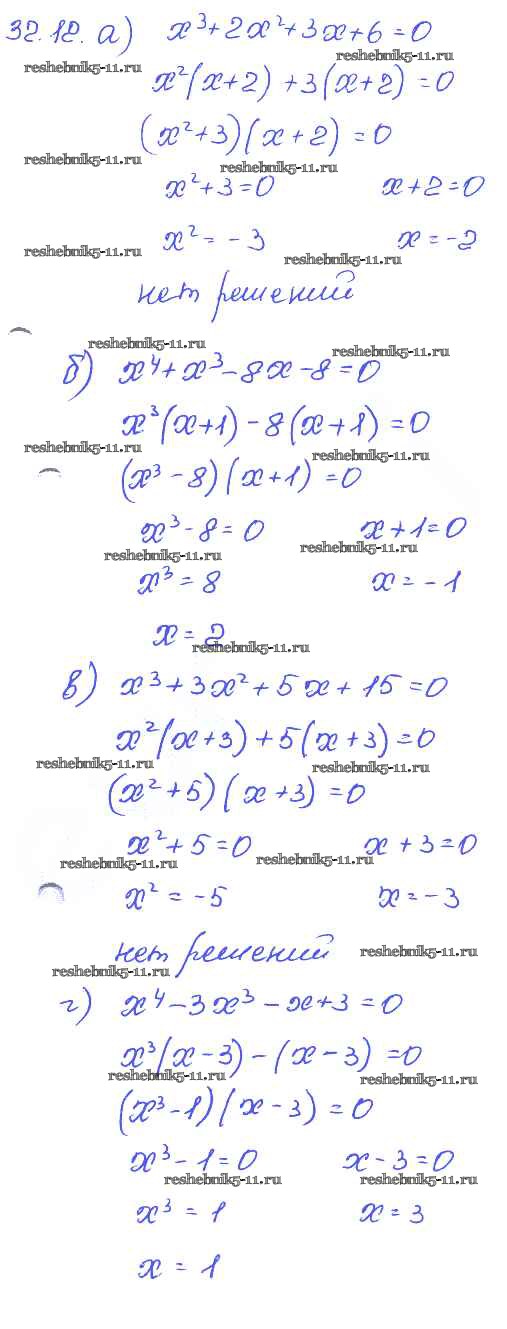 32.12. а) x³+2x²+3x+6=0
reshebnik5-11.ru reshebnik5-11.ru
x²(x+2)+3(x+2)=0
(x²+3)(x+2)=0
reshebnik5-11.ru reshebnik5-11.ru
x²+3=0 x+2=0
x²=-3 x=-2
reshebnik5-11.ru reshebnik5-11.ru
нет решений
reshebnik5-11.ru reshebnik5-11.ru
б) x⁴+x³-8x-8=0
x³(x+1)-8(x+1)=0
reshebnik5-11.ru reshebnik5-11.ru
(x³-8)(x+1)=0
x³-8=0 x+1=0
reshebnik5-11.ru reshebnik5-11.ru
x³=8 x=-1
x=2
reshebnik5-11.ru
в) x³+3x²+5x+15=0
x²(x+3)+5(x+3)=0
reshebnik5-11.ru reshebnik5-11.ru
(x²+5)(x+3)=0
x²+5=0 x+3=0
reshebnik5-11.ru reshebnik5-11.ru
x²=-5 x=-3
нет решений reshebnik5-11.ru
reshebnik5-11.ru
г) x⁴-3x³-x+3=0
x³(x-3)-(x-3)=0
reshebnik5-11.ru reshebnik5-11.ru
(x³-1)(x-3)=0
x³-1=0 x-3=0
reshebnik5-11.ru reshebnik5-11.ru
x³=1 x=3
x=1